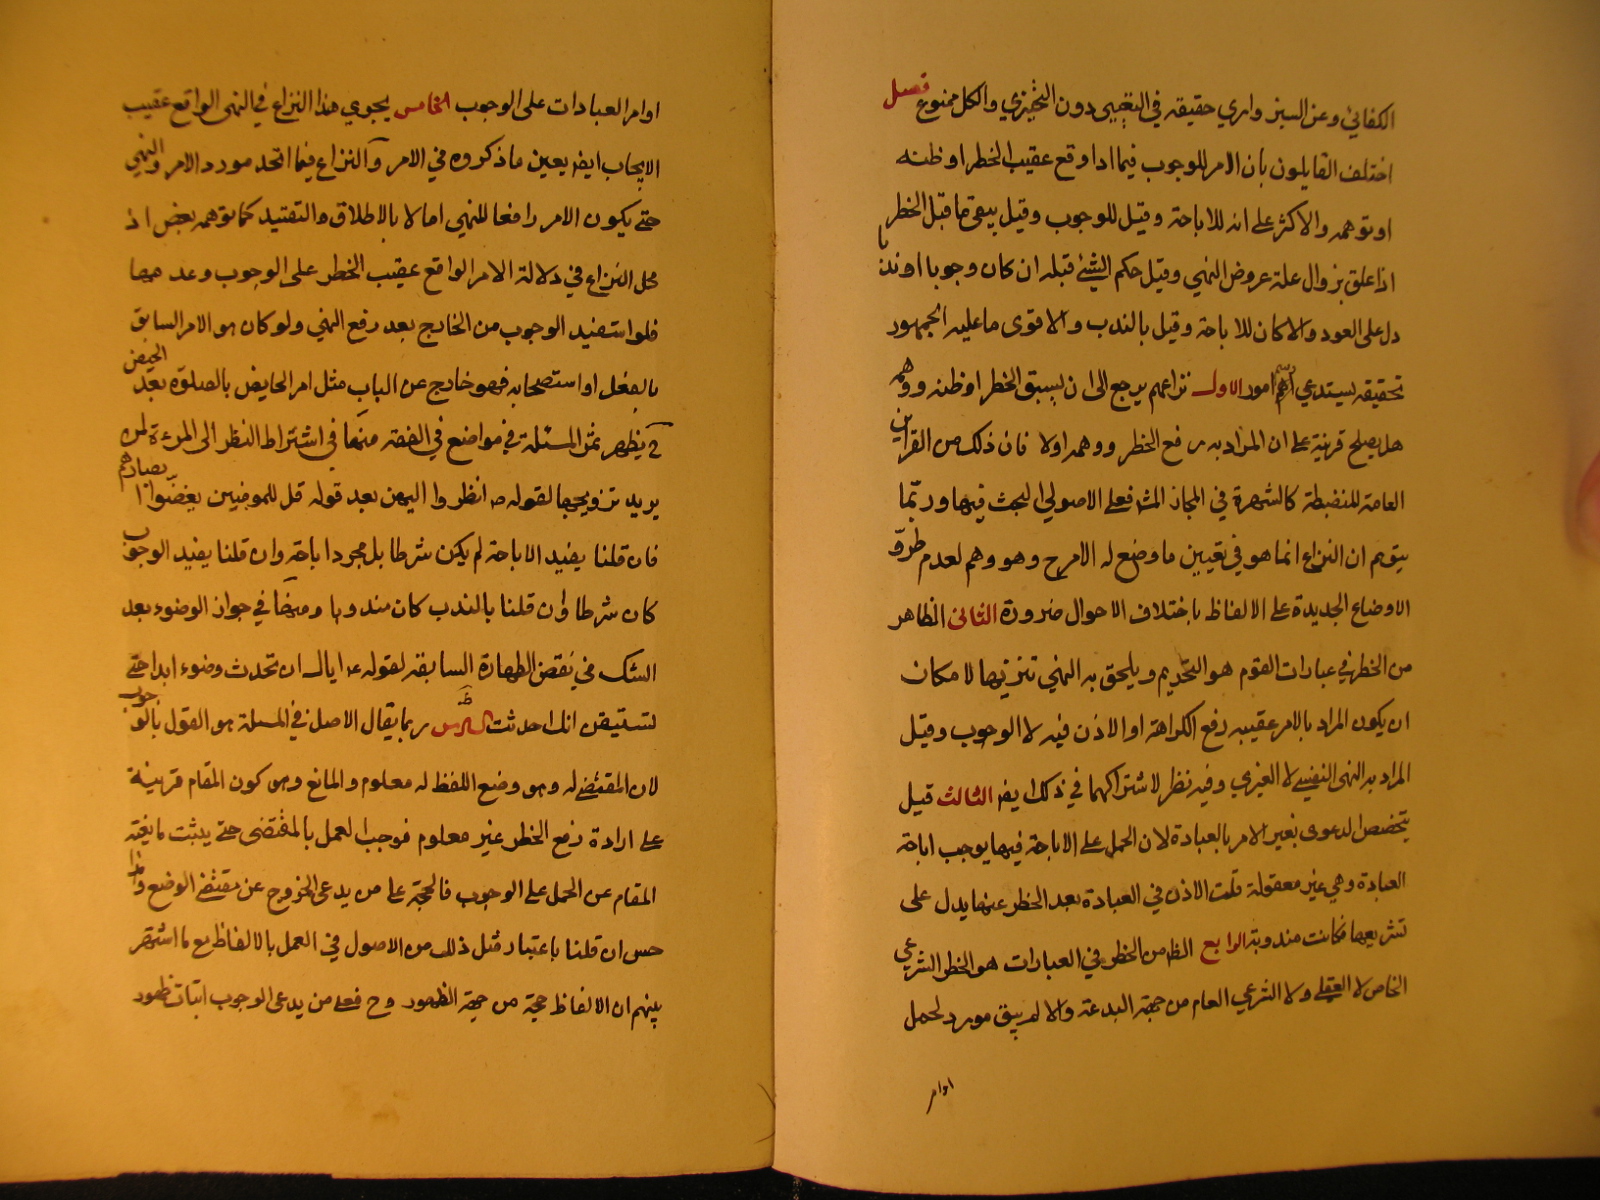 الكفائي وعن السيز واري حقيقه في التعييى دون التخيزي والكل ممنوع فصل
اختلف القايلون بان الامر للوجوب فيما اذا وقع عقيب الخطر او ظنه
او توهمه والاكثر على انه للاباحة وقيل للوجوب وقيل يبقى ما قبل الخطر
اذا علق بزوال علة عروض النهي وقيل حكم الشئ قبله ان كان وجوبا او ندبا
دل على العود والا كان للاباحة وقيل بالندب والاقوى ما عليه الجمهور
تحقيقه يستدعي رسم امور الاول نزاعهم يرجع الى ان يسبق الخطر او ظنه ووهمه
هل يصلح قرينة على ان المراد به رفع الخطر ووهمه اولا فان ذلك من القراين
العامة المنضبطة كالشهرة في المجاز المش فعلى الاصولي البحث فيها وربما
يتوهم ان النزاع انما هو في تعيين ما وضع له الامر ح وهو وهم لعدم طروّ
الاوضاع الجديدة على الالفاظ باختلاف الاحوال ضرورة الثانى الظاهر
من الخطر في عبارات القوم هو التحريم ويلحق به النهي تنزيها لامكان
ان يكون المراد بالامر عقيبه رفع الكراهة او الاذن فيه لا الوجوب وقيل
المراد به النهي النفسي لا الغيري وفيه نظر لاشتراكهما في ذلك ايضا الثالث قيل
يتخصص الدعوى بغير الامر بالعبادة لان الحمل على الاباحة فيها يوجب اباحة
العبادة وهي غير معقولة قلت الاذن في العبادة بعد الخطر عنها يدل على
تشريعها فكانت مندوبة الرابع الظ من الخطر في العبارات هو الخطر الشرعي
الخاص لا العقلي ولا الشرعي العام من جهة البدعة والا لم يبق مورد لحمل
اوامر
اوامر العبادات على الوجوب الخامس يجري هذا النزاع في النهي الواقع عقيب
الايجاب ايضا بعين ما ذكروه في الامر والنزاع فيما اتحد مورد الامر والنهي
حتى يكون الامر رافعا للنهي اما لا بالاطلاق والتقييد كما توهمه بعض اذ
محل النزاع في دلالة الامر الواقع عقيب الخطر على الوجوب وعدمها
فلو استفيد الوجوب من الخارج بعد رفع النهي ولو كان هو الامر السابق
بالفعل او استصحابه فهو خارج عن الباب مثل امر الحايض بالصلوة بعد الحيض
ثم يظهر ثمر المسئلة في مواضع في الفقه منها في اشتراط النظر الى المرءة لمن
يريد تزويجها لقوله ص انظروا اليهن بعد قوله قل للمومنين يغضوا ابصارهم
فان قلنا يفيد الاباحة لم يكن شرطا بل مجرد اباحة وان قلنا يفيد الوجوب
كان شرطا وان قلنا بالندب كان مندوبا ومنها في جواز الوضوء بعد
الشك في نقض الطهارة السابقة لقوله ع اياك ان تحدث وضوء ابدا حتى
تستيقن انك احدثت السادس ربما يقال الاصل في المسئلة هو القول بالوجوب
لان المقتضى له وهو وضع اللفظ له معلوم والمانع وهو كون المقام قرينة
على ارادة رفع الخطر غير معلوم فوجب العمل بالمقتضى حتى يثبت مانعية
المقام عن الحمل على الوجوب فالحجة على من يدعى الخروج عن مقتضى الوضع وهذا
حسن ان قلنا باعتبار مثل ذلك من الاصول في العمل بالالفاظ مع ما اشتهر
بينهم ان الالفاظ حجة من جهة الظهور وح فعلى من يدعى الوجوب اثبات ظهور